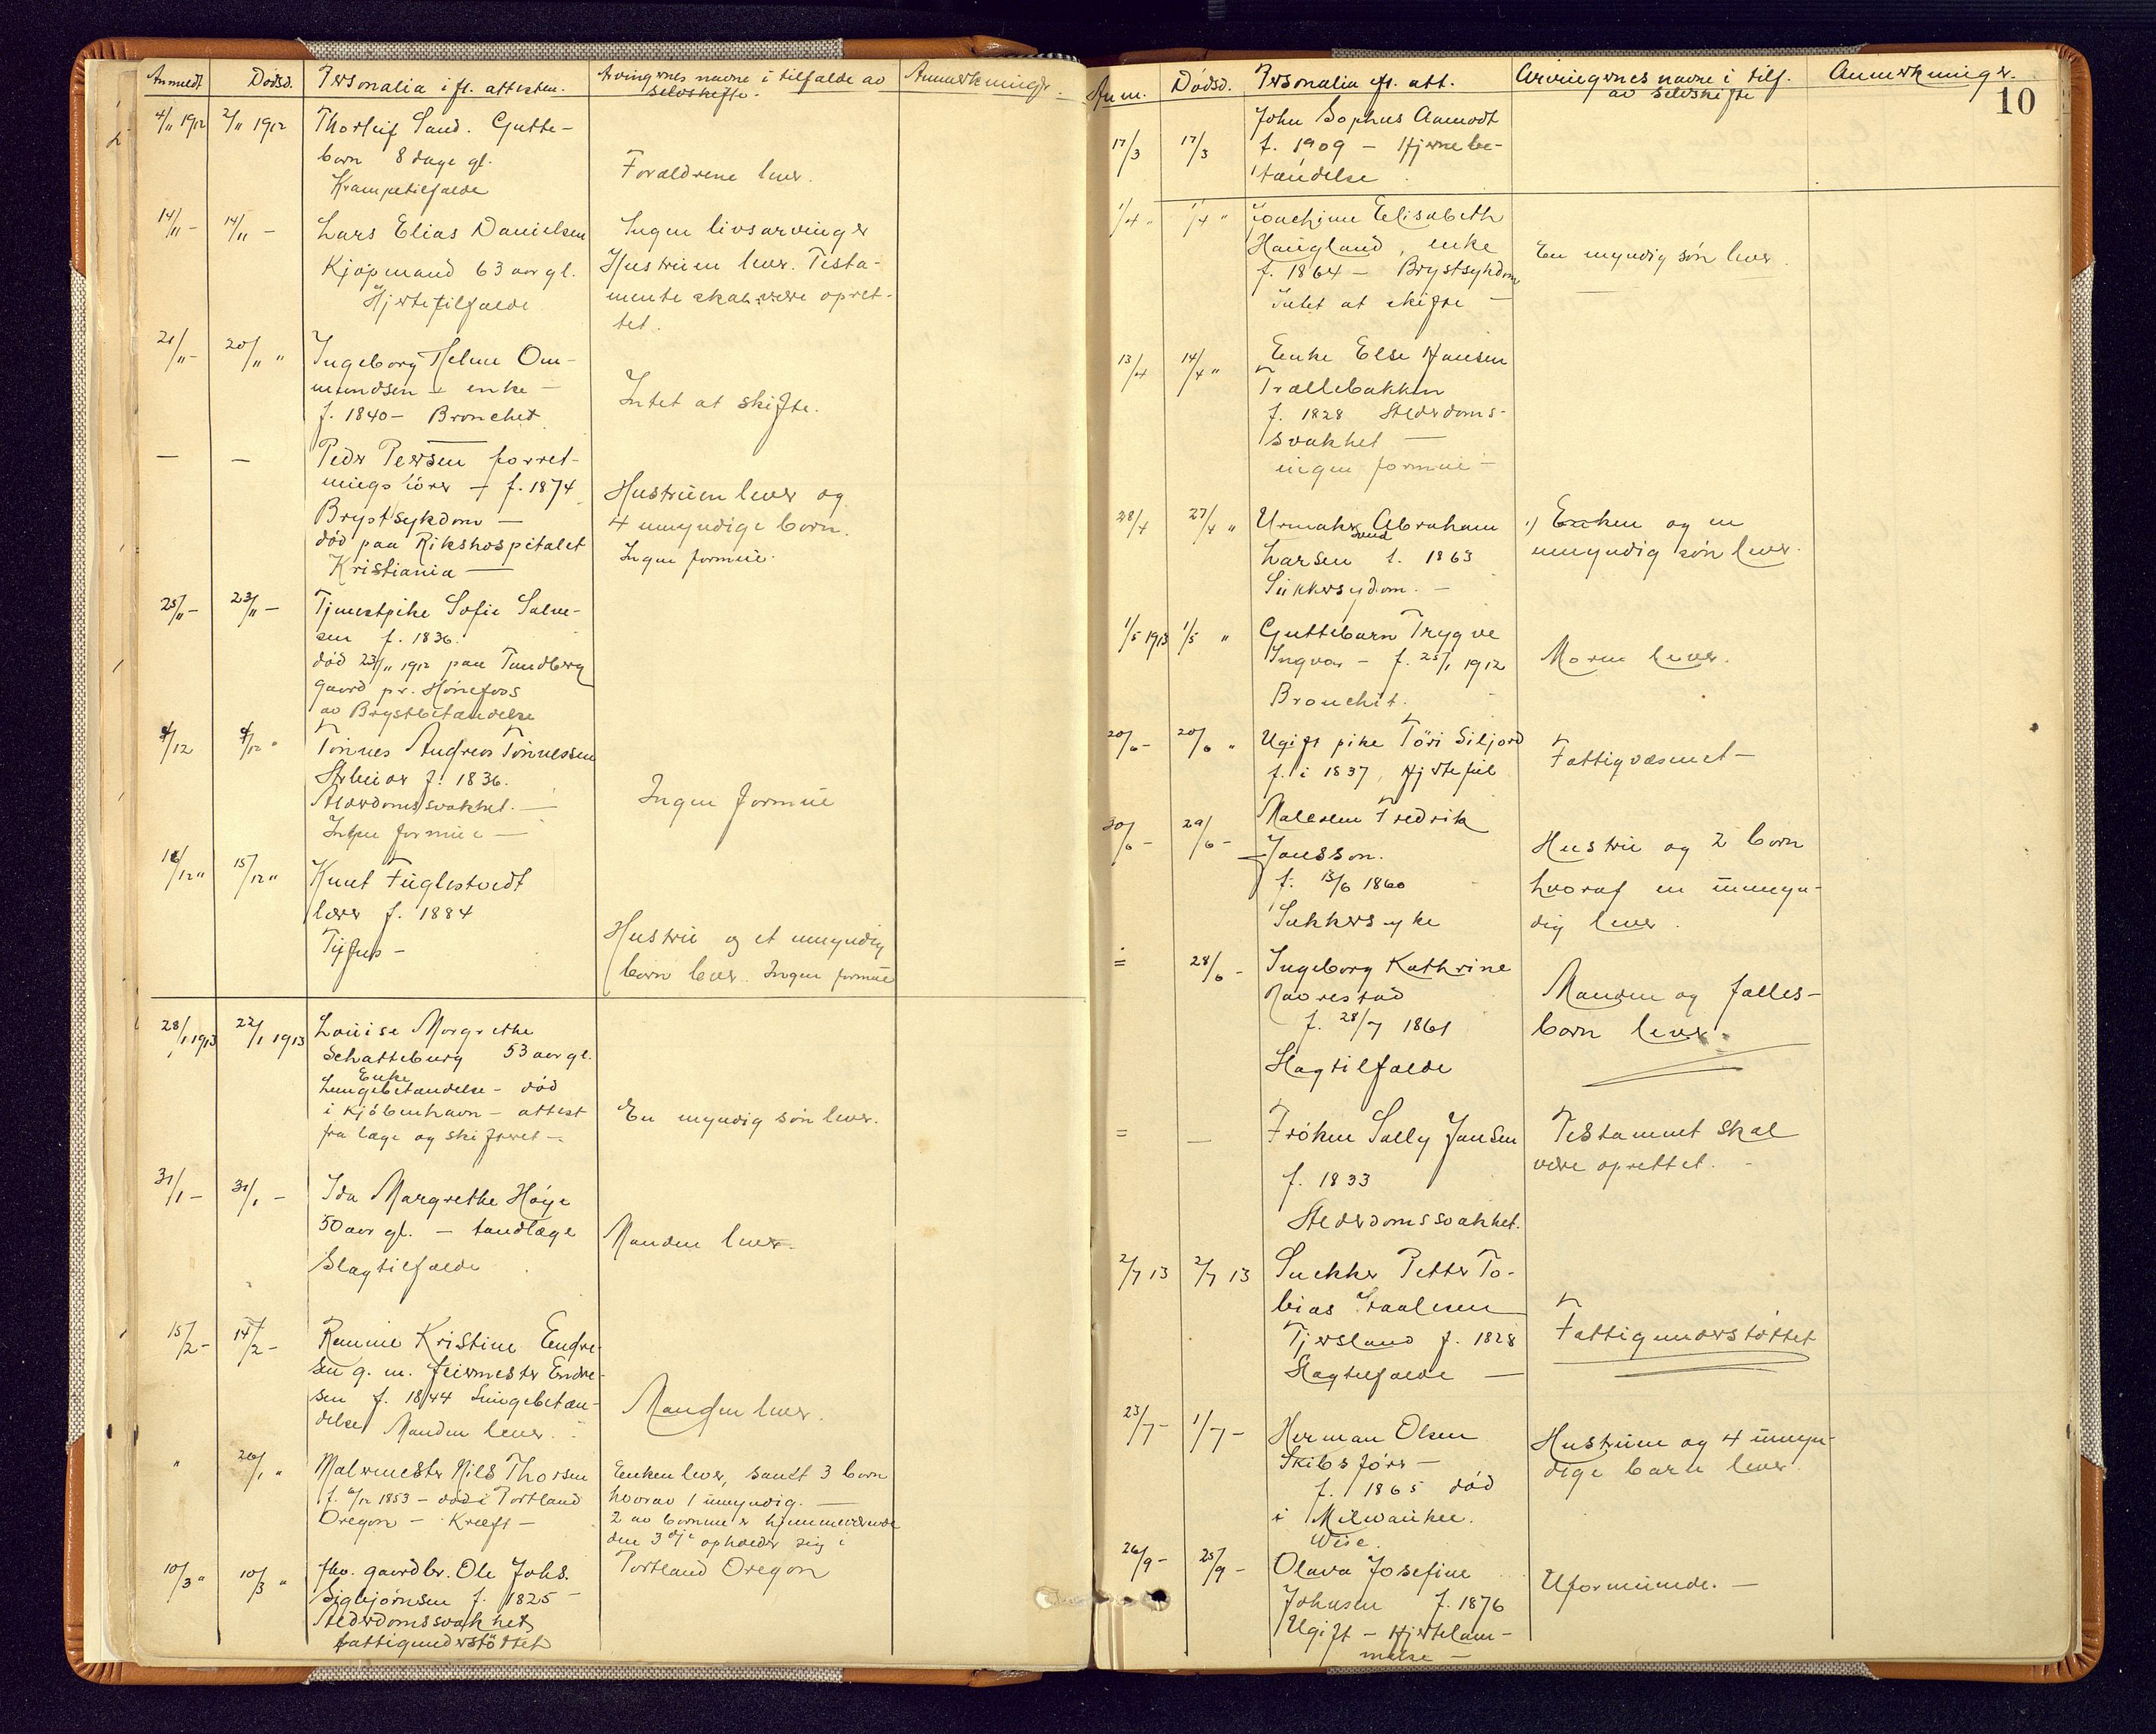 Anmeldt Dødsd. Personalia ifl. attesten. Arvingernes navne i tilfælde av selvskifte. Anmerkninger.
4/11 1912 2/11 1912 Thorleif Sand. Gutte-
barn 8 dage gl.
Krampetilfælde Forældrene lever.
14/11 - 14/11 - Lars Elias Danielsen Ingen livsarvinger
Kjøpmand 63 aar gl. Hustruen lever. Testa-
Hjertetilfælde mente skal være opret-
tet.
21/11 - 20/11 " Ingeborg Helene Om-
mundsen - enke -
f. 1840 - Bronchit Intet at skifte.
— — Peder Persen forret-
ningsfører - f. 1874 Hustruen lever og
Brystsykdom - 4 umyndige born.
død paa Rikshospitalet Ingen formue.
Kristiania —
25/11 - 23/11 - Tjenestpike Sofie Salve-
sen f. 1836.
død 23/11 1912 paa Tandberg
gaard pr. Hønefoss
av Brystbetændelse
4/12 4/12 " Tønnes Andreas Tønnessen
Arbeider f. 1836.
Alderdomssvakhet. — Ingen formue
Ingen formue —
16/12 " 15/12 " Knut Fuglestvedt
lærer f. 1884 Hustru og et umyndig
Tyfus - barn lever. Ingen formue
28/1 1913 22/1 1913 Louise Margrethe
Schatteburg 53 aar gl.
Enke
Lungebetændelse - død
i Kjøbenhavn - attest En myndig søn lever.
fra læge og skifteret -
31/1 - 31/1 - Ida Margrethe Høye
50 aar gl. - tandlæge Manden lever.
Slagtilfælde
15/2 - 14/2 - Ramine Kristine Endre-
sen g. m. feiermester Endre-
sen f. 1844 Lungebetæn- Manden lever.
delse Manden lever.
" 26/1 " Malermester Nils Thorsen Enken lever, samt 3 born
f. 6/12 1853 - død i Portland hvorav 1 umyndig. —
Oregon - Kræft - 2 av bornene er hjemmeværende
den 3dje opholder sig i
10/3 " 10/3 " fhv. gaardbr. Ole Johs. Portland Oregon
Sigbjørnsen f. 1825 -
Alderdomssvakhet
fattigunderstöttet
10
Anm. Dødsd. Personalia efl. att. Arvingernes navne i tilf. av selvskifte Anmerkninger.
John Sophus Aamodt
17/3 17/3 f. 1909 - Hjernebe-
tændelse
1/4 " 1/4 " Joachime Elisabeth
Haugland, enke En myndig søn lever.
f. 1864 - Brystsykdom
Intet at skifte -
13/4 14/4 " Enke Else Hansen
Trællebakken
f. 1828 Alderdoms-
svakhet —
ingen formue -
28/4 27/4 " Urmaker Abraham Enken og en
Larsen f. 1863 umyndig søn lever.
Sukkersydom. -
1/5 1913 1/5 " Guttebarn Trygve
Ingvar - f. 25/1 1912 Moren lever.
Bronchit.
20/6 - 20/6 " Ugift pike Töri Siljord Fattigvæsenet -
f. i 1837, Hjertefeil
30/6 - 29/6 - Maleren Fredrik
Jansson. Hustru og 2 born
f. 13/6 1860 hvoraf en umyn-
Sukkersyke dig lever.
= 28/6 - Ingeborg Kathrine
Naorestad Manden og fælles-
f. 28/7 1861 born lever.
Slagtilfælde
= — Frøken Sally Jansen Testament skal
f. 1833 være oprettet. -
Alderdomssvakhet.
2/7 13 2/7 13 Snekker Petter To-
bias Isaaksen
Tjersland f. 1828 Fattigunderstøttet
Slagtilfælde —
23/7 - 1/7 - Herman Olsen Hustruen og 4 umyn-
Skibsfører - dige barn lever.
f. 1865 død
i Milwaukee.
Wise.
26/9 - 25/9 - Olava Josefine Uformuende. -
Johnsen f. 1876
Ugift - Hjertelam-
melse -